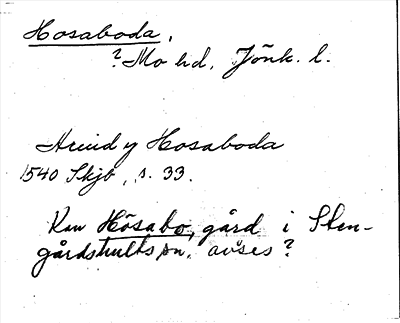 Hosaboda,
? Mo hd, Jönk. l.
Arvid y Hosaboda
1540 Skjb, s. 33.
Kan Hösabo, gård i Sten-
gårdshults sn, avses?